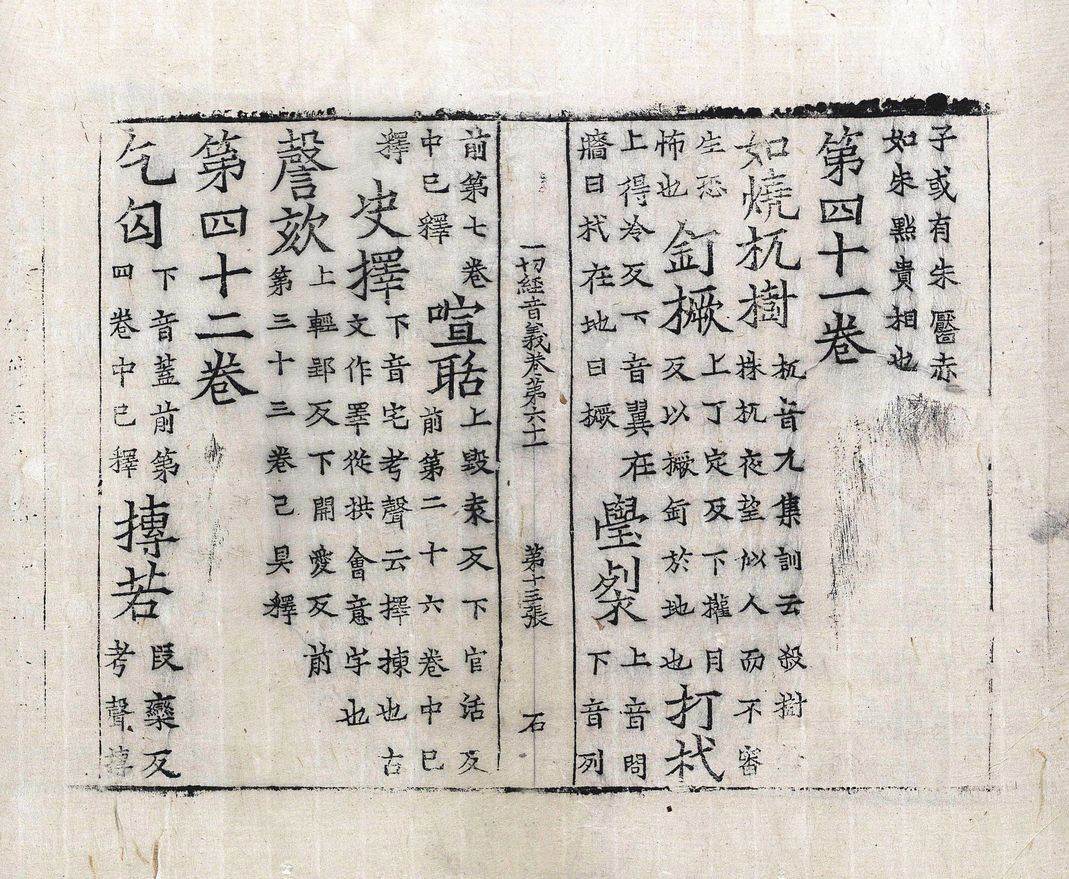 子或有朱黶赤
如朱點貴相也
第四十一卷
如燒杌樹
杌音九集訓云殺樹
株杌夜望似人而不審
生恐
怖也
釘橛
上丁定反下攉月
反以橛釘於地也
打杙
上得冷反下音翼在
牆曰杙在地曰橛
舋裂
上音問
下音列
一切經音義卷第六十一 第十三張 石
前第七卷
中已釋
喧聒
上毀袁反下官活反
前第二十六卷中已
釋
決擇
下音宅考聲云擇揀也古
文作睪從拱會意字也
謦欬
上輕郢反下開愛反前
第三十三卷已具釋
第四十二卷
乞匃
下音蓋前第
四卷中已釋
摶若
段欒反
考聲摶